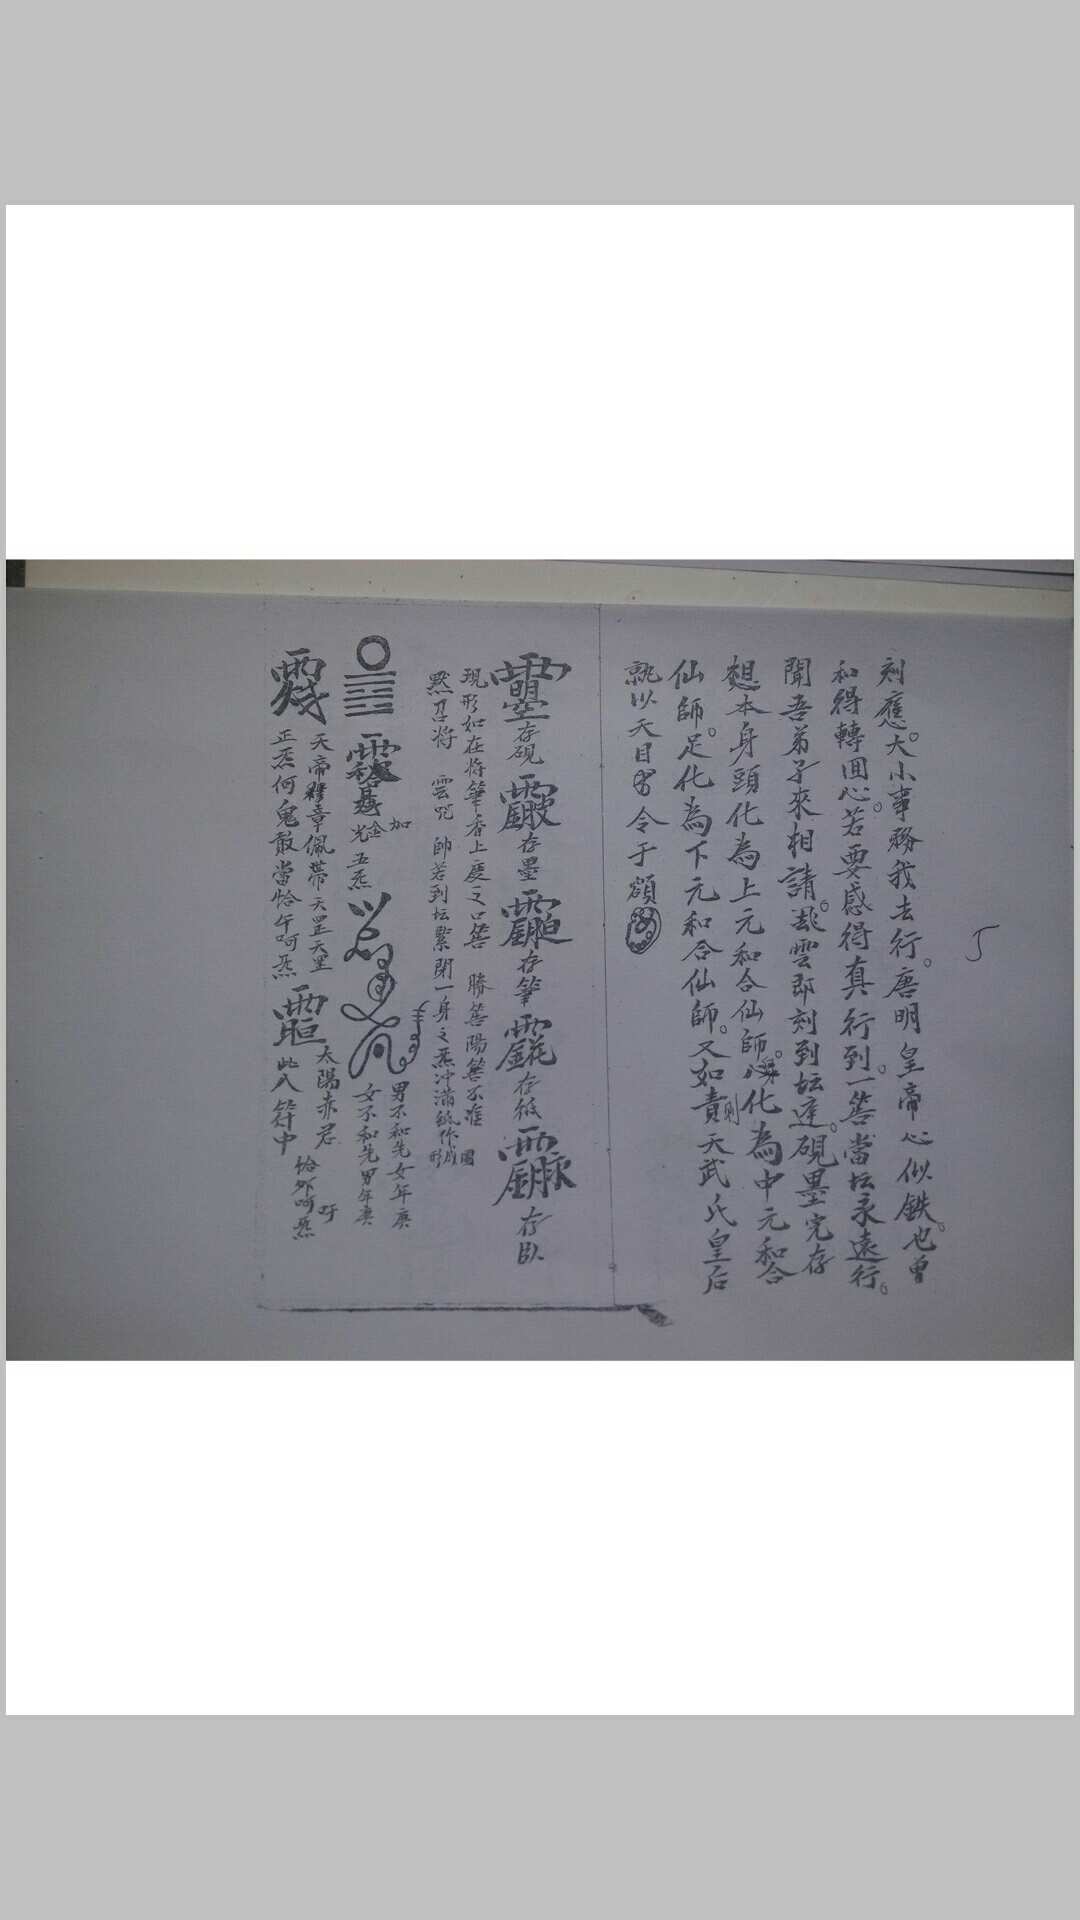 5
刻應。大小事務我去行。唐明皇帝心似鉄。也曾
和得轉囬心。若要感得真行到。一筶當坛永遠行。
聞吾弟子來相請。雲即刻到坛逹。硯墨完存
想本身頭化為上元和合仙師。化為中元和合
仙師。足化為下元和合仙師。又如責天武氏皇后
就以天目令于頟
存硯 存墨 存筆 存紙 存臥
現形如在将筆香上度之口筶 勝筶陽筶不准
黙召将 雲咒 帥若到坛緊閉一身之炁冲滿紙作成
加
金光 五炁
男不和先女年庚
女不和先男年庚
天帝釋章佩帶天罡天里
正炁何鬼敢當恰午呵炁
太陽赤君
恰卯呵炁
吁
此八符中